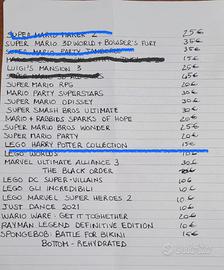 SUPER MARIO MAKER 2 25€
SUPER MARIO 3D WORLD + BOWSER'S FURY 35€
SUPER MARIO PARTY JAMBOREE 35€
15€
LUIGI'S MANSION 3 25€
SUPER MARIO RPG 20€
MARIO PARTY SUPERSTARS 30€
SUPER MARIO ODISSEY 30€
SUPER SMASH BROS ULTIMATE 30€
MARIO + RABBIDS SPARKS OF HOPE 20€
SUPER MARIO BROS WONDER 25€
SUPER MARIO PARTY 20€
LEGO HARRY POTTER COLLECTION 15€
LEGO WORLDS 10€
MARVEL ULTIMATE ALLIANCE 3 30€
THE BLACK ORDER
LEGO DC SUPER-VILLAINS 10€
LEGO GLI INCREDIBILI 10€
LEGO MARVEL SUPER HEROES 2 10€
JUST DANCE 2021 10€
WARIO WARE: GET IT TOGHETHER 20€
RAYMAN LEGEND DEFINITIVE EDITION 10€
SPONGEBOB: BATTLE FOR BIKINI 15€
BOTTOM - REHYDRATED
subito